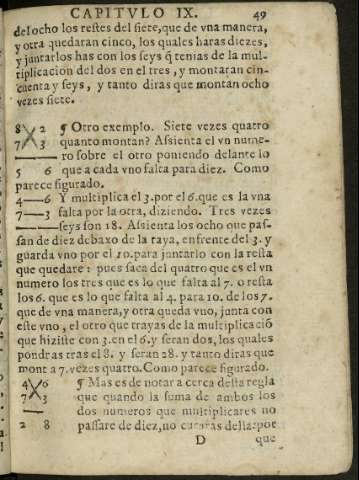 CAPITVLO IX. 49
del ocho los restes del siete, que de vna manera,
y otra quedaran cinco, los quales haras diezes,
y juntarlos has con los seys q̃ tenias de la mul-
tiplicacion del dos en el tres, y montaran cin-
cuenta y seys, y tanto diras que montan ocho
vezes siete.
8 2 ¶ Otro exemplo. Siete vezes quatro
7 3 quanto montan? Assienta el vn nume-
ro sobre el otro poniendo delante lo
5 6 que a cada vno falta para diez. Como
parece figurado.
4—6 Y multiplica el 3. por el 6. que es la vna
7—3 falta por la otra, diziendo. Tres vezes
seys son 18. Assienta los ocho que pas-
san de diez debaxo de la raya, enfrente del 3. y
guarda vno por el 10. para juntarlo con la resta
que quedare: pues saca del quatro que es el vn
numero los tres que es lo que falta al 7. o resta
los 6. que es lo que falta al 4. para 10. de los 7.
que de vna manera, y otra queda vno, junta con
este vno, el otro que trayas de la multiplicació
que hiziste con 3. en el 6. y seran dos, los quales
pondras tras el 8. y seran 28. y tanto diras que
monta 7. vezes quatro. Como parece figurado.
4 6 ¶ Mas es de notar acerca desta regla
7 3 que quando la suma de ambos los
dos numeros que multiplicares no
2 8 passare de diez, no curaras della: por
D que